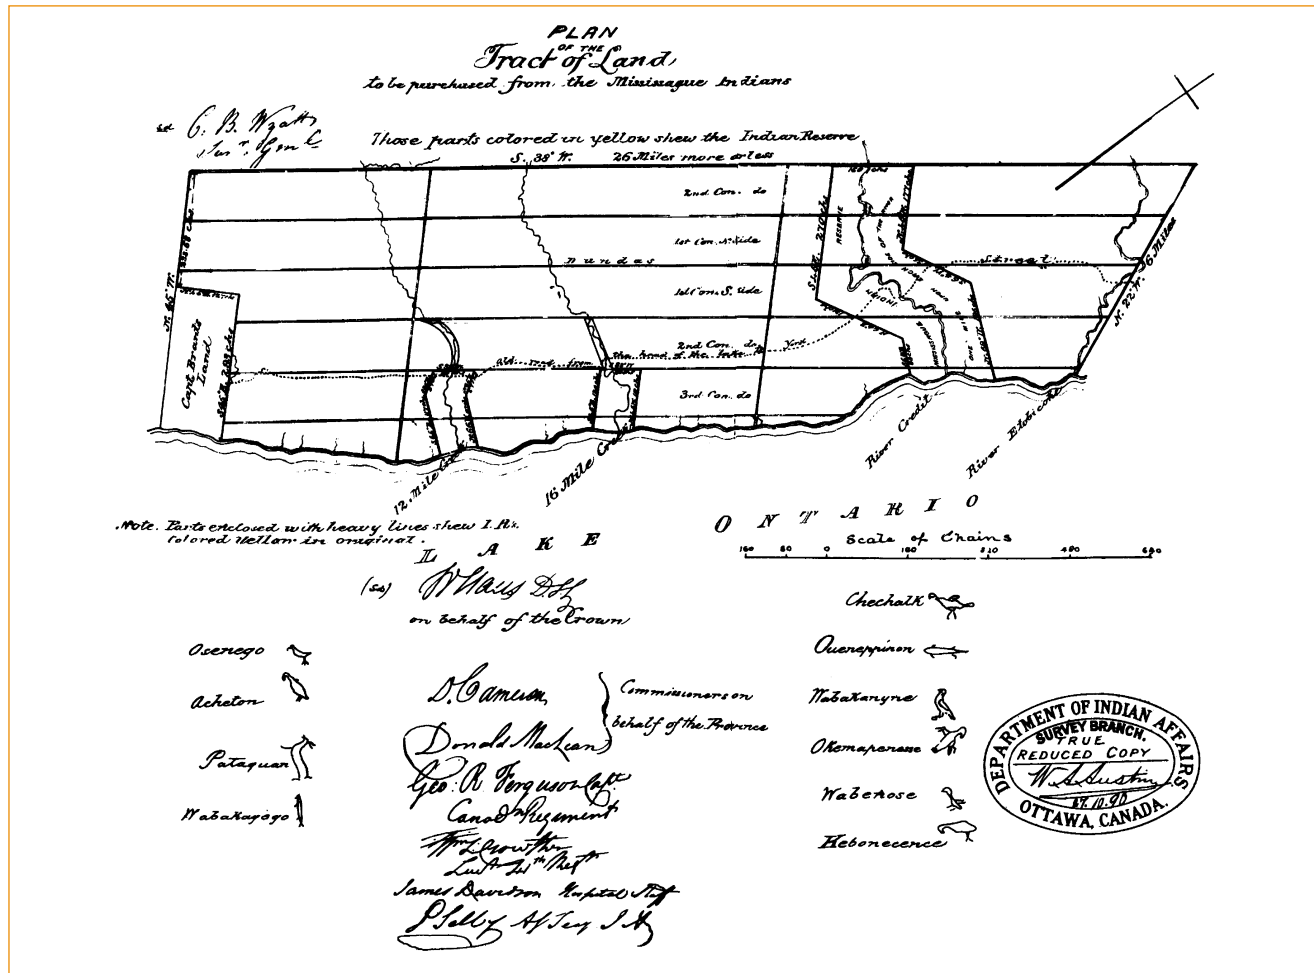 PLAN
OF THE
Tract of Land
to be purchased from the Mississague Indians
sd C. B. Wyatt
Surr. Genl
Those parts colored in yellow shew the Indian Reserve
S. 38° W. 26 Miles more or less
2nd Con. do
1st Con. N. Side
Dundas Street
1st Con. S. Side
2nd Con. do
old road from the head of the lake to York
3rd Con. do
N. 45° W.
Capt Brants
Land
RESERVE
N. 22° W. 6 Miles
12 Mile Creek
16 Mile Creek
River Credit
River Etobicoke
Note. Parts enclosed with heavy lines shew I. Rs.
colored Yellow in original.
LAKE ONTARIO
Scale of Chains
160 80 0 160 310 480 680
(sd) W Claus D.S.G.
on behalf of the Crown
Osenego
Acheton
Pataquan
Wabakagogo
D. Cameron
Donald Maclean
Commissioners on
behalf of the Province
Geo: R Ferguson Capt.
Canadn Regiment
Wm L Crowther
Lieut 41th Regt
James Davidson Hospital Staff
P Selby
Chechalk
Queneppinon
Wabakanyne
Okemapenesse
Wabenose
Hebonecence
DEPARTMENT OF INDIAN AFFAIRS
SURVEY BRANCH.
TRUE
REDUCED COPY
W. A. Austin
27.10.90
OTTAWA, CANADA.